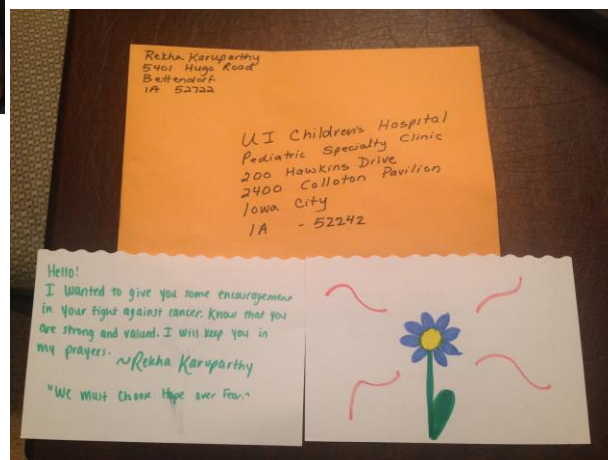 Rekha Karuparthy
5401 Hugo Road
Bettendorf
IA 52722
UI Children's Hospital
Pediatric Specialty Clinic
200 Hawkins Drive
2400 Colloton Pavilion
Iowa City
IA - 52242
Hello!
I wanted to give you some encouragement
in your fight against cancer. Know that you
are strong and valued. I will keep you in
my prayers.
~Rekha Karuparthy
"We must choose Hope over Fear."